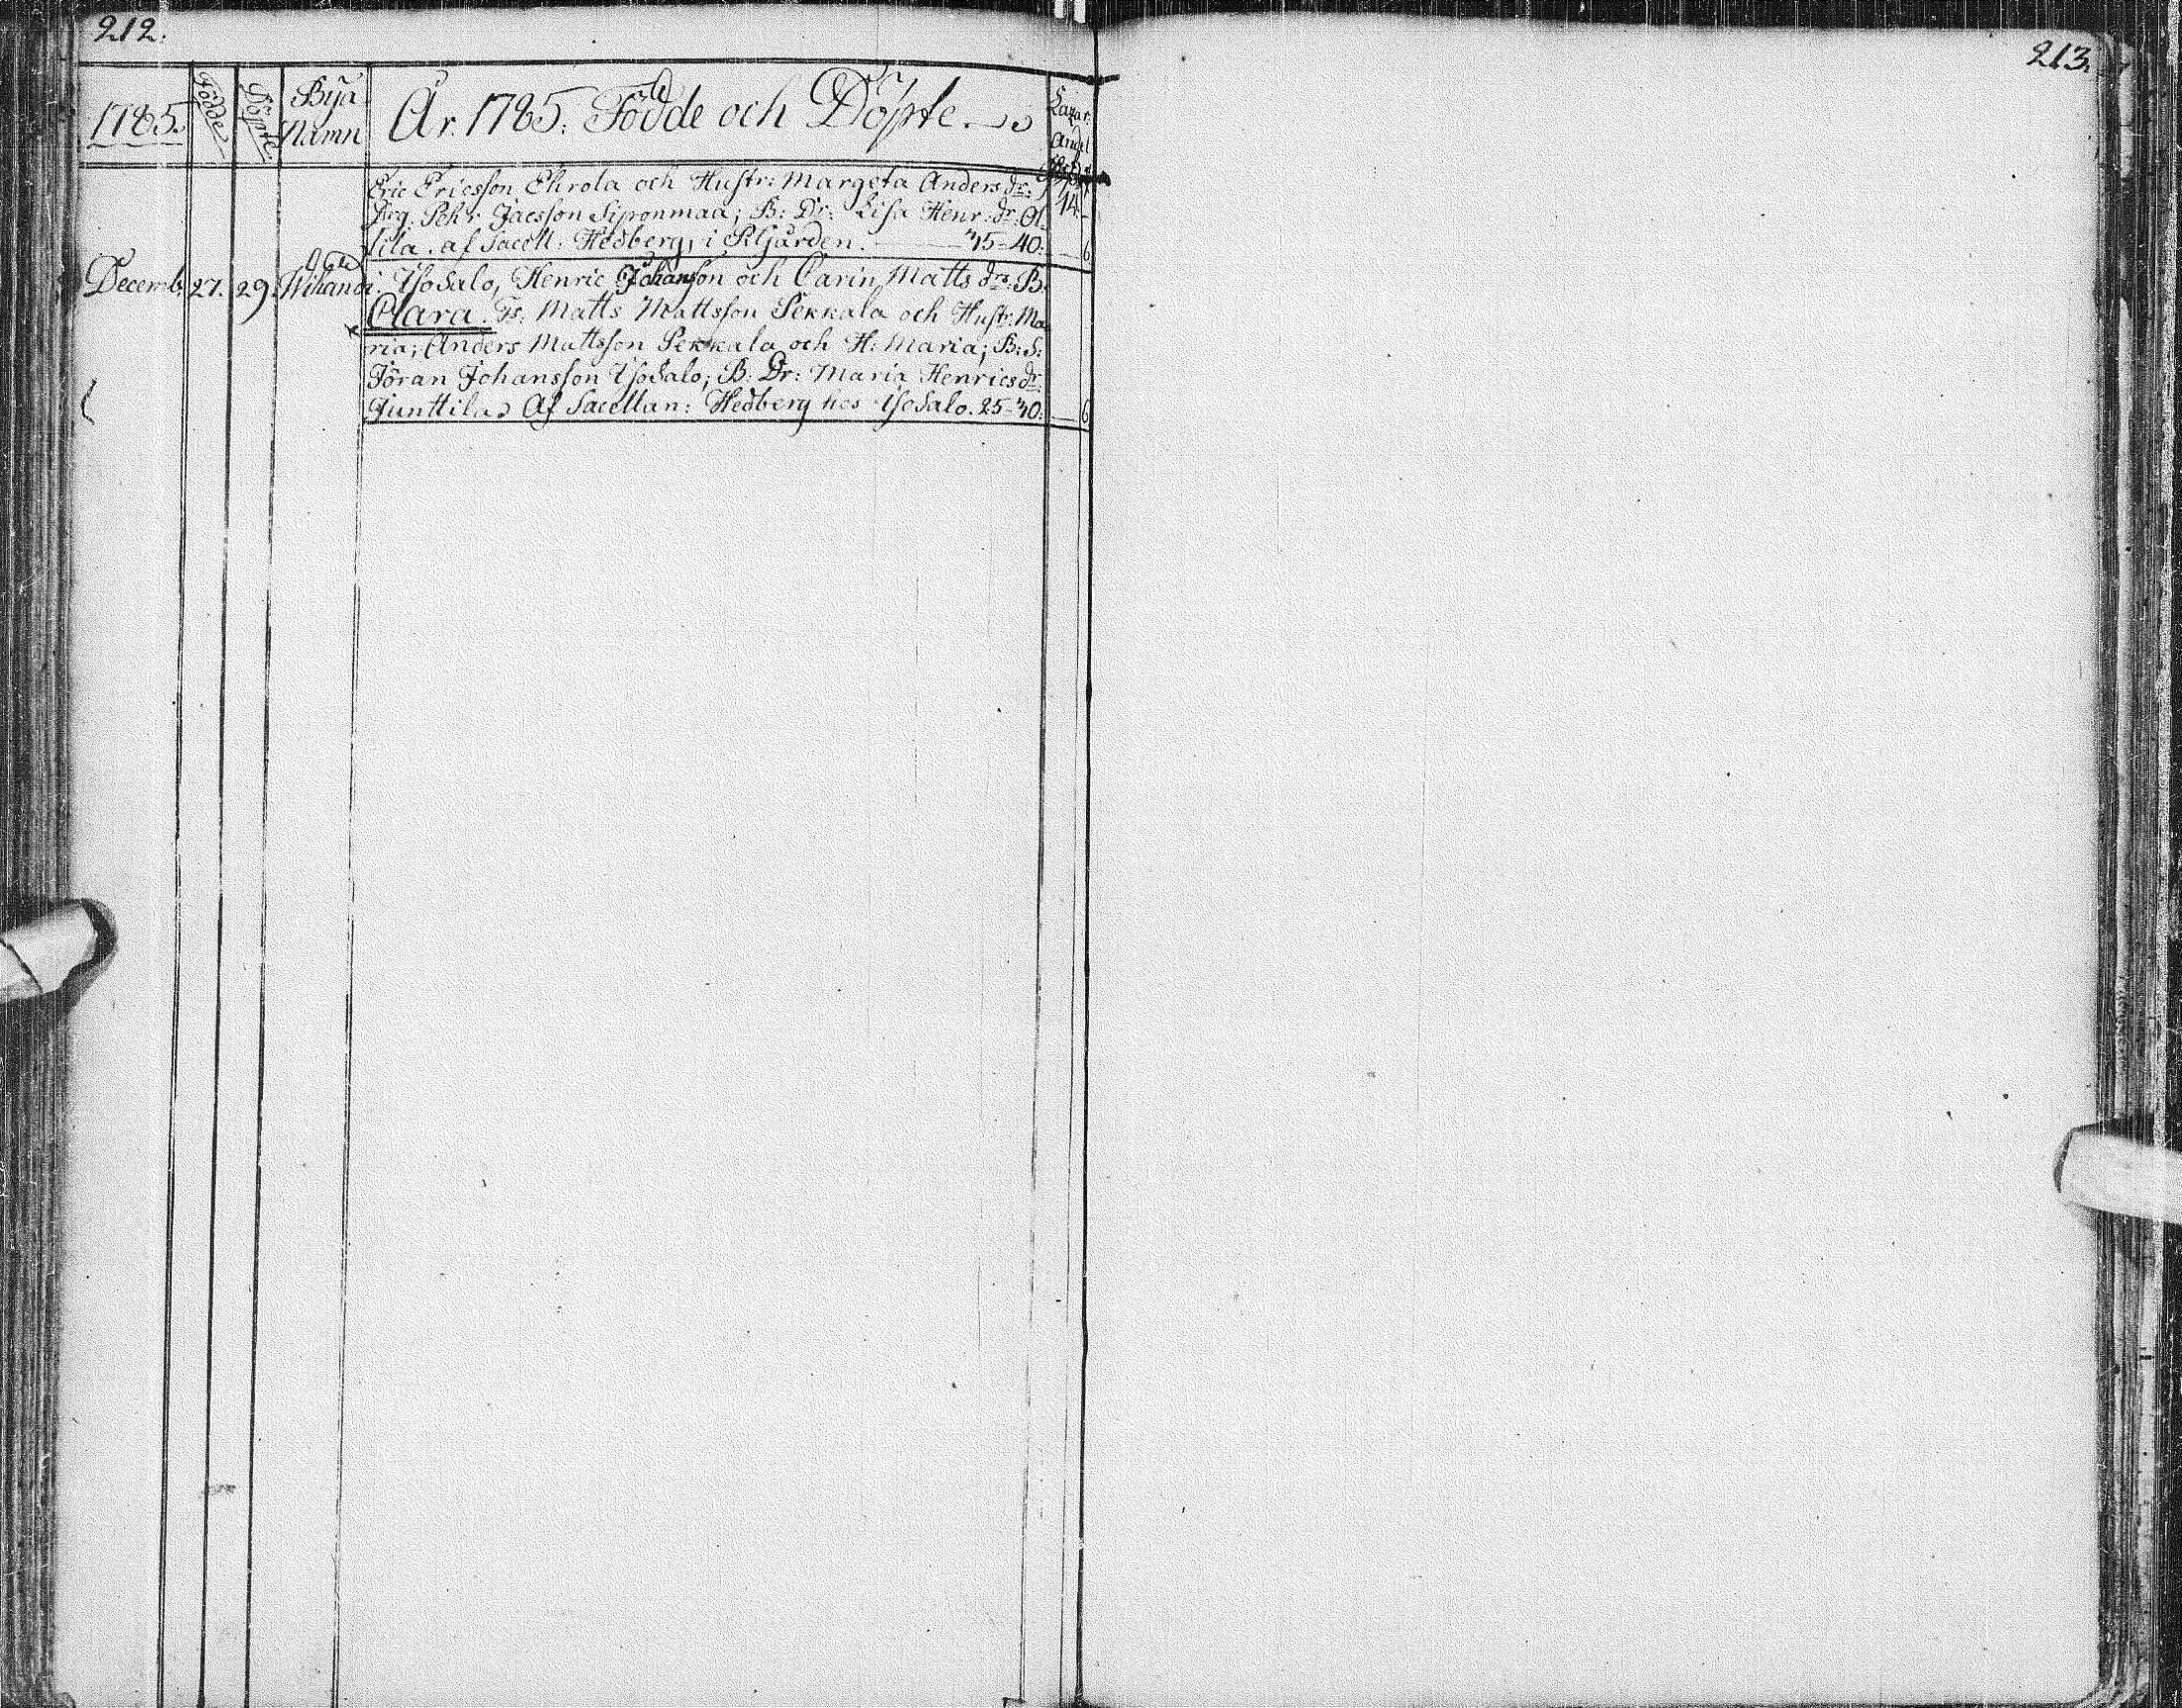 212.
213.
1785.
Födde
Döpte.
Byä
Namn
Är. 1785. Födde och Döpte.
Lazar:
Andel
14.
Eric Ericsson Ehrola och Hustr: Margeta Anders dr:
Drg. Pehr Jacsson Sipronmaa; B: Dr: Lisa Henr: dr: Ol-
lila. af Sacell: Hedberg, i Pr.gården. 45-40. 6
Decemb. 27. 29. Wihandi: Isosalo, Henric Johansson och Carin Matts dr: B.
Clara. Fs: Matts Mattsson Pekkala och Hustr: Ma
ria; Anders Mattsson Pekkala och H: Maria; B: S:
Jöran Johansson Isosalo; B: Dr: Maria Henrics dr:
Junttila. Af Sacellan: Hedberg hos Isosalo. 25-40. 6